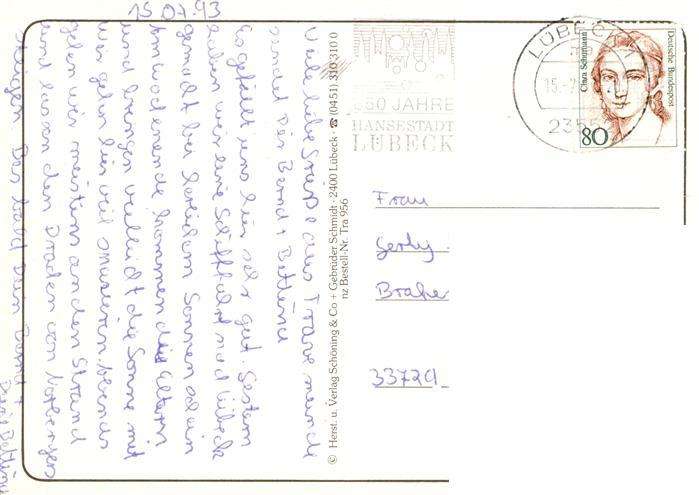 15.07.93
Viele liebe Grüße aus Travemünde
sendet Dir Bernd + Bettina
Es gefällt uns hier sehr gut. Gestern
haben wir eine Schifffahrt nach Lübeck
gemacht bei Sonnenschein
Am Wochenende kommen die Eltern
und bringen vielleicht die Sonne mit
wir gehen hier viel spazieren. Abends
gehen wir meistens an den Strand
und lassen den Drachen von
steigen. Bis bald Dein Bernd +
Deine Bettina
© Herst. u. Verlag Schöning & Co + Gebrüder Schmidt · 2400 Lübeck · ☎ (0451) 310 310 0
nz Bestell-Nr. Tra 956
850 JAHRE
HANSESTADT
LÜBECK
LÜBECK
15.-7.
Clara Schumann
Deutsche Bundespost
80
Frau
Gerly
Brake
33729